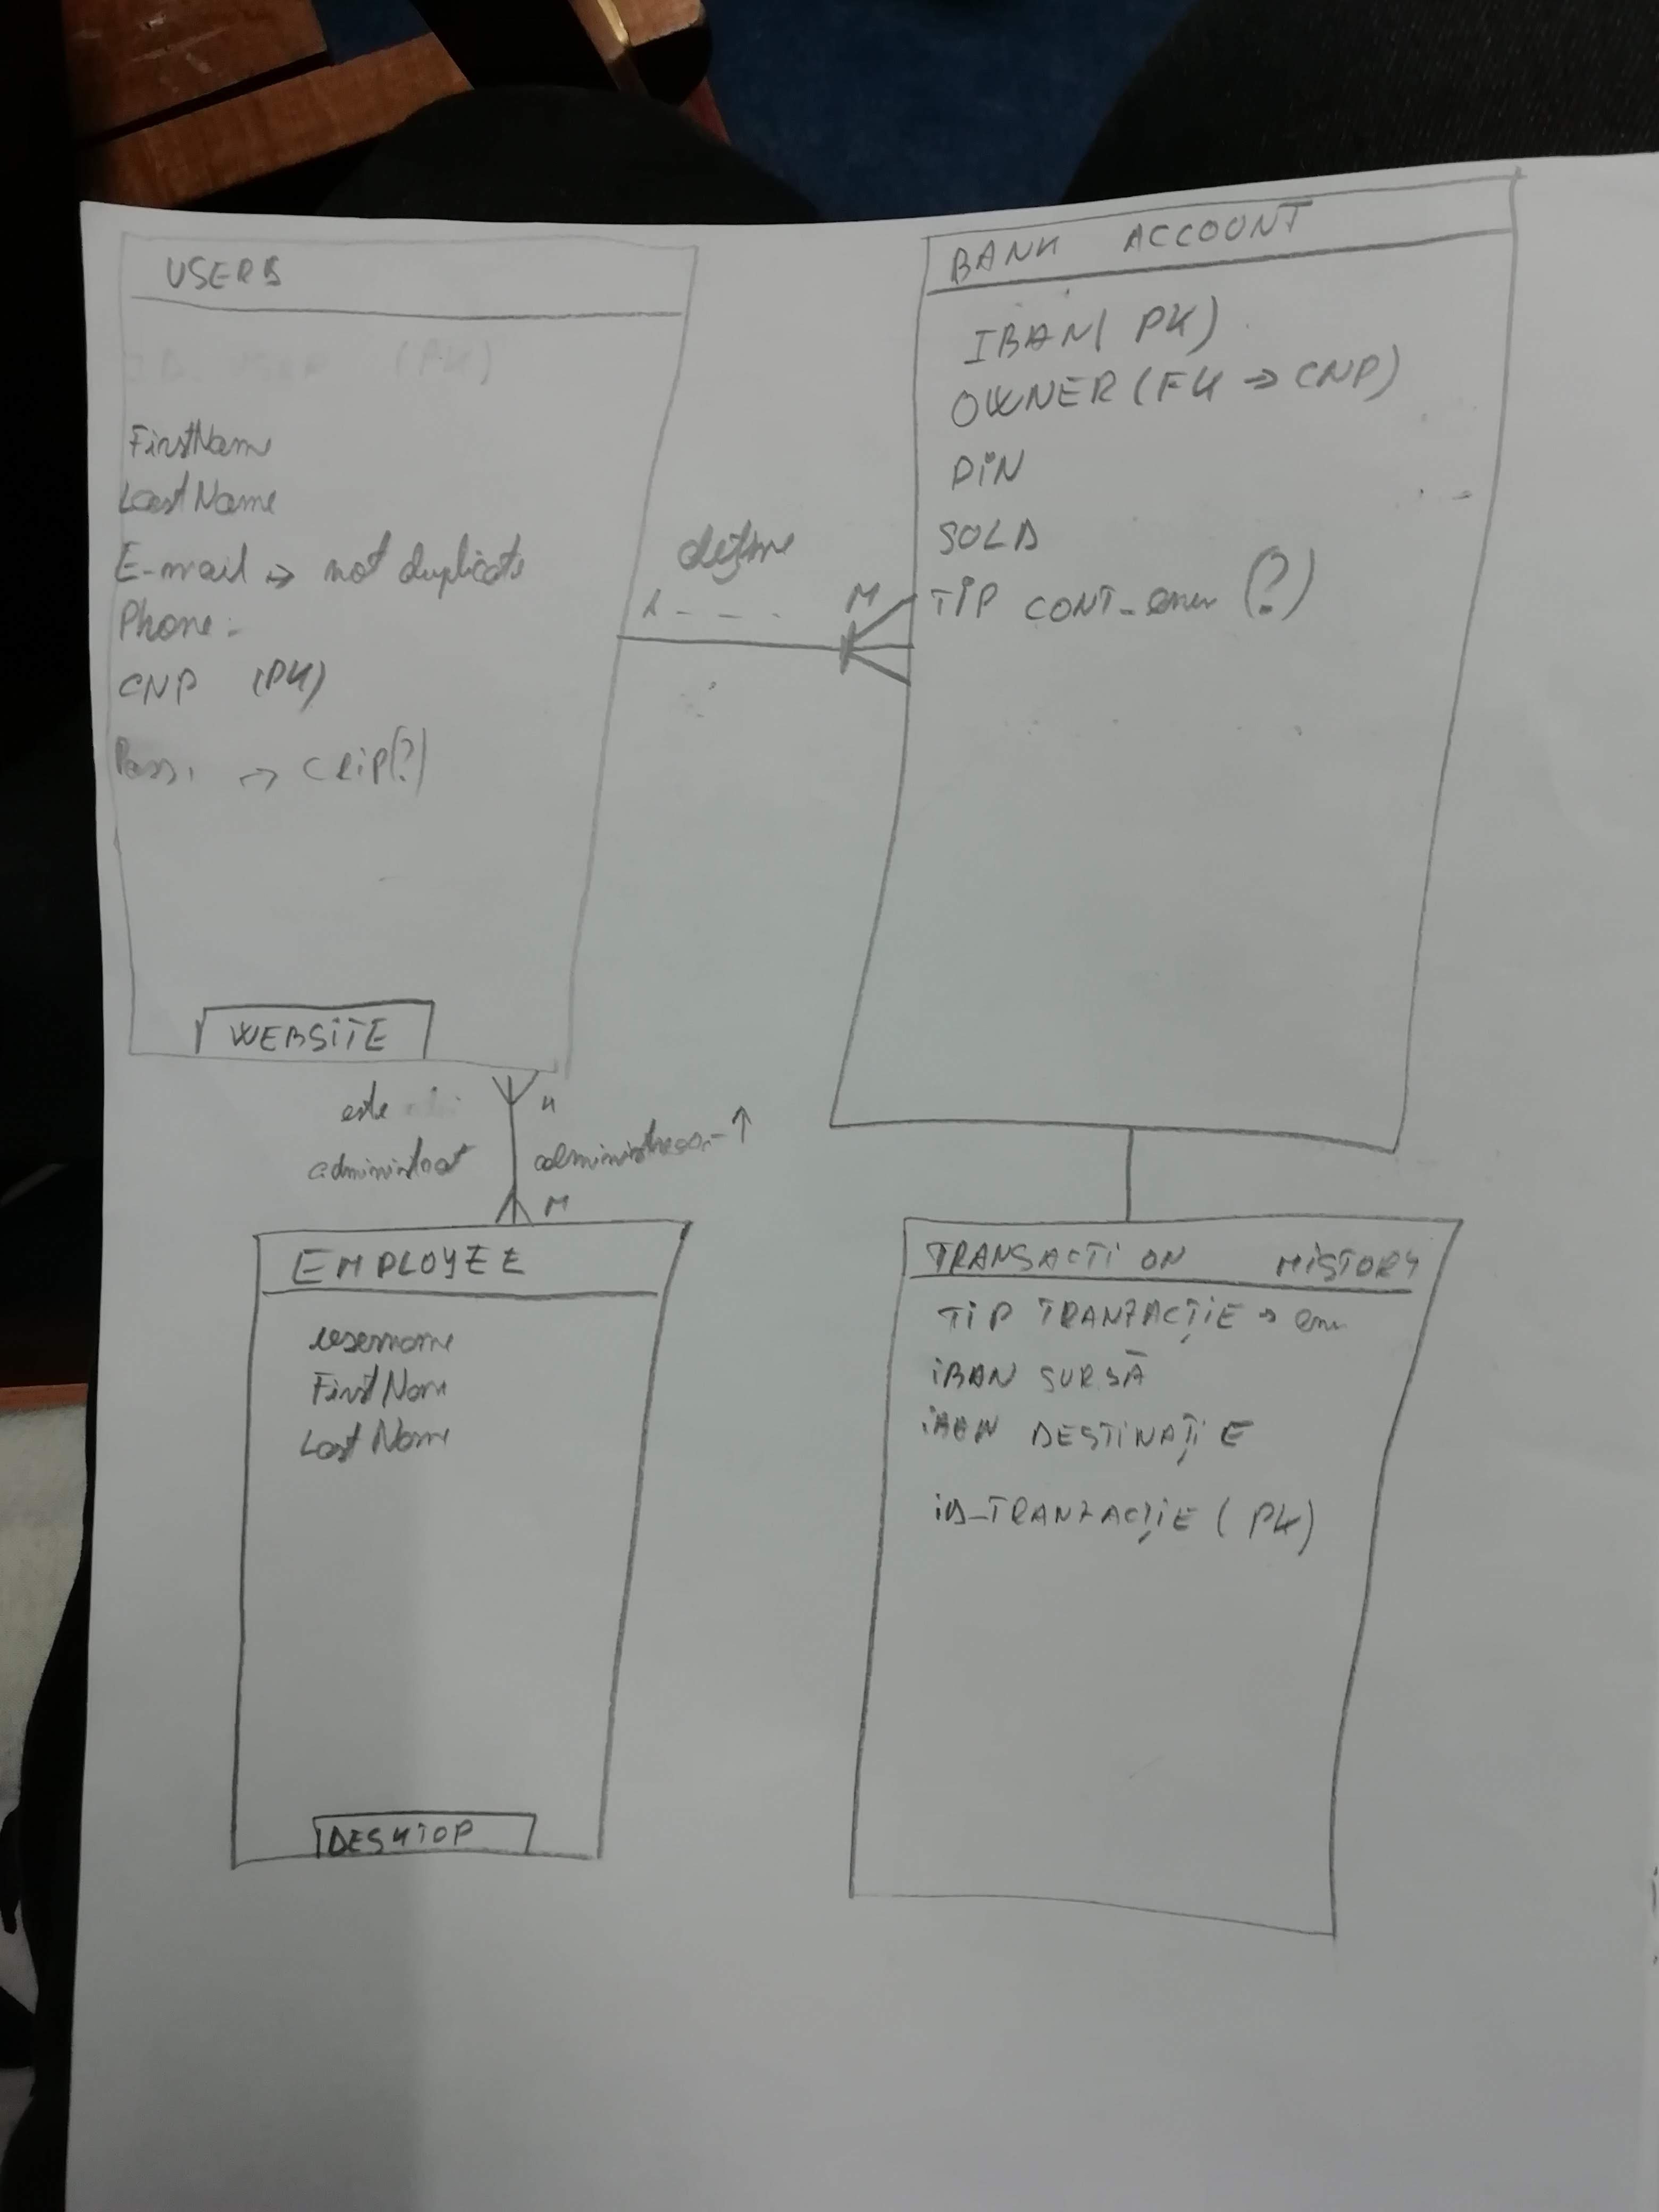 USERS
(PK)
FirstName
LastName
E-mail → not duplicate
Phone
CNP (PK)
Pass → CRIP(?)
WEBSITE
deține
1 M
BANK ACCOUNT
IBAN (PK)
OWNER (FK → CNP)
PIN
SOLD
TIP CONT_enum (?)
este
administrat
N
administrează ↑
M
EMPLOYEE
username
FirstName
LastName
DESKTOP
TRANSACTION HISTORY
TIP TRANZACȚIE → enum
IBAN SURSĂ
IBAN DESTINAȚIE
ID_TRANZACȚIE (PK)